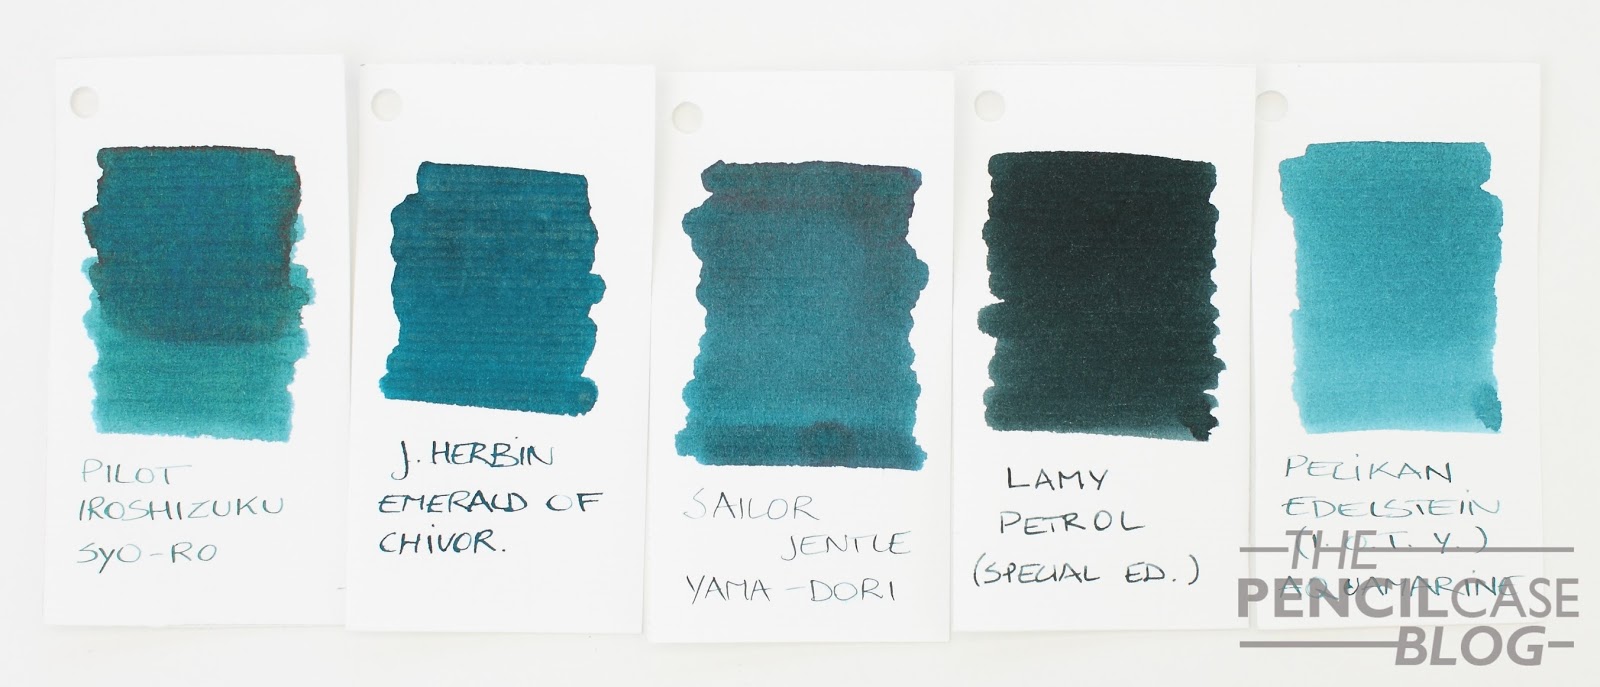 PILOT
IROSHIZUKU
SYO-RO
J. HERBIN
EMERALD OF
CHIVOR.
SAILOR
JENTLE
YAMA-DORI
LAMY
PETROL
(SPECIAL ED.)
PELIKAN
EDELSTEIN
(I. O. T. Y.)
AQUAMARINE
THE
PENCILCASE
BLOG